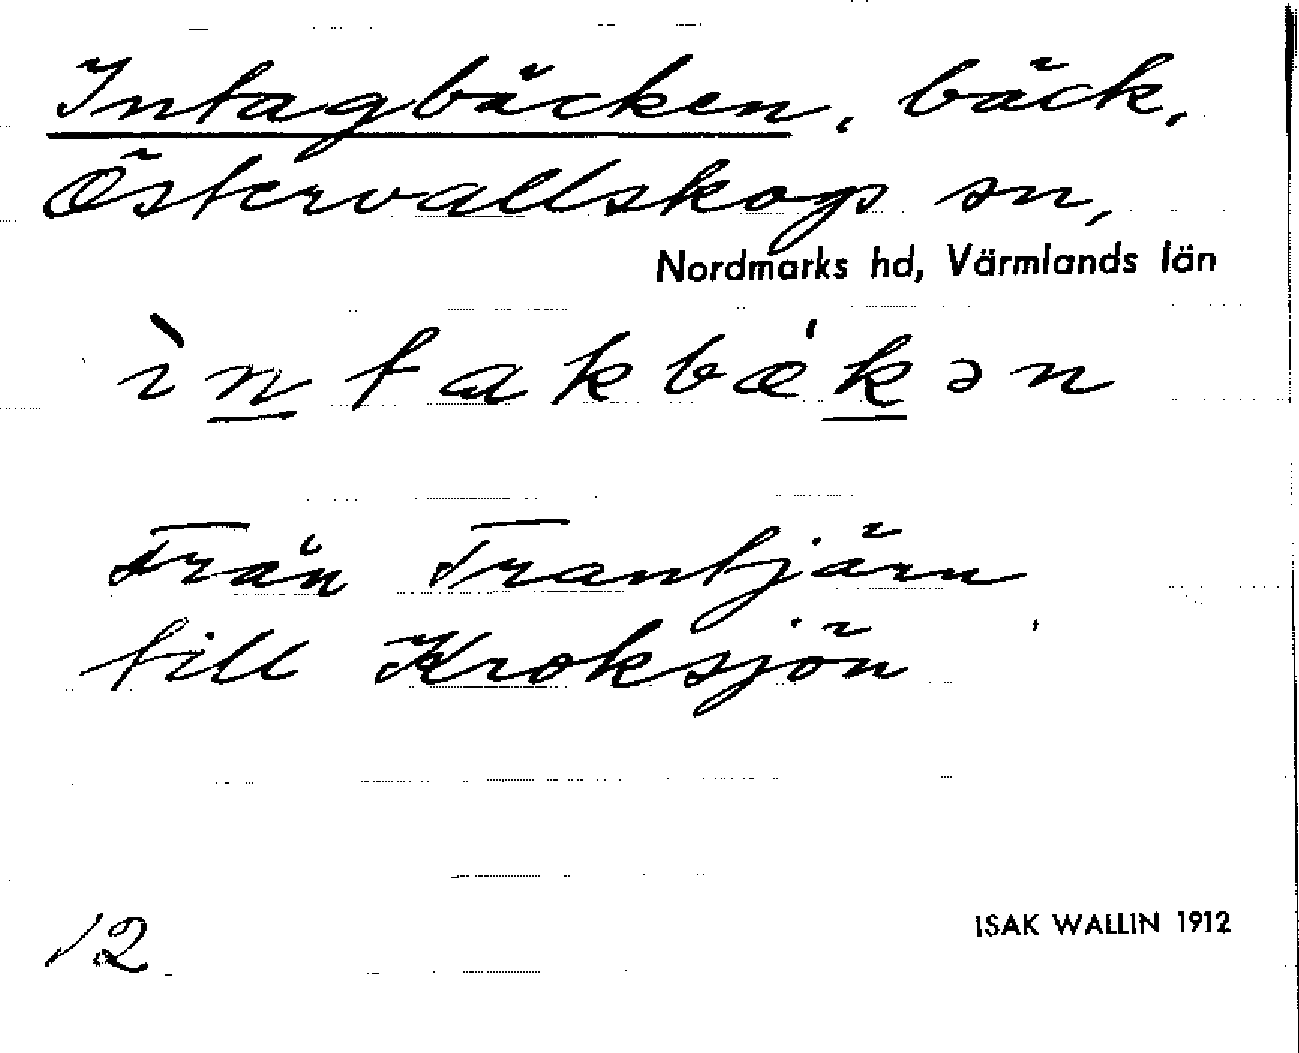 Intagbäcken, bäck,
Östervallskogs sn,
Nordmarks hd, Värmlands län
ìn̲takbæ'k̲ən
Från Trantjärn
till Kroksjön
12
ISAK WALLIN 1912